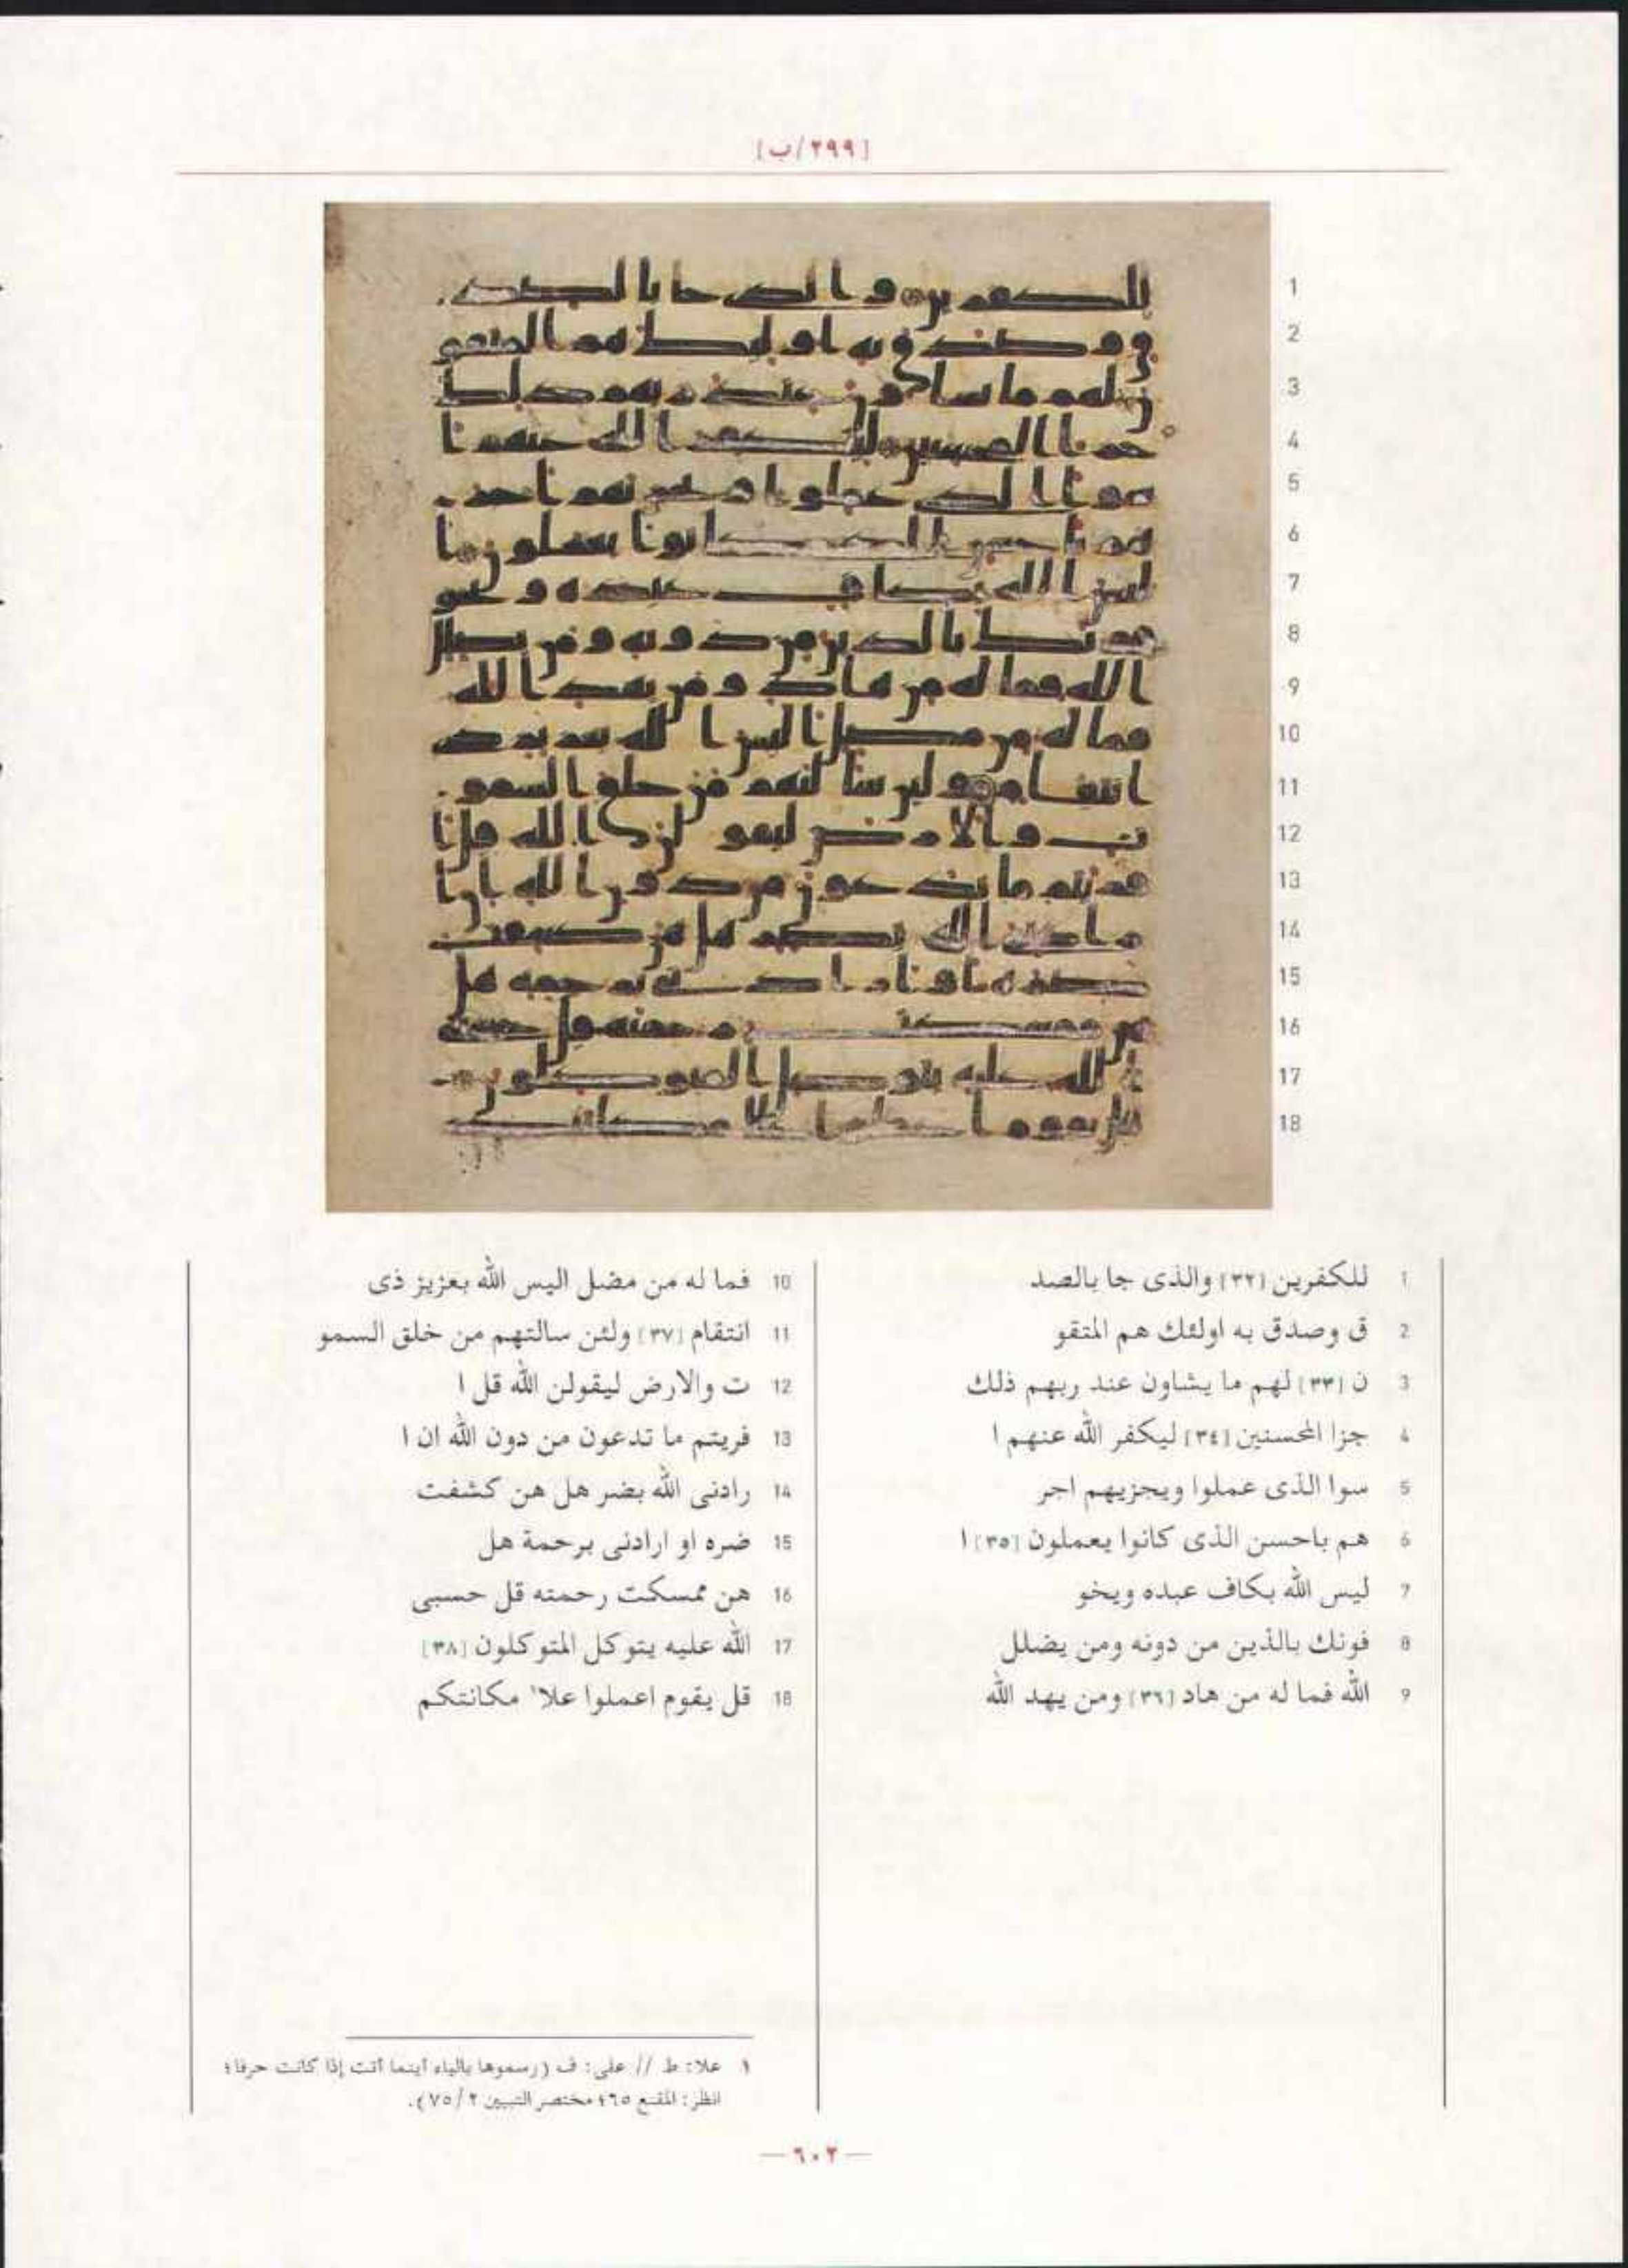 [٢٩٩/ب]
1 للكفرين [٣٢] والذى جا بالصد
2 ق وصدق به اولئك هم المتقو
3 ن [٣٣] لهم ما يشاون عند ربهم ذلك
4 جزا المحسنين [٣٤] ليكفر الله عنهم ا
5 سوا الذى عملوا ويجزيهم اجر
6 هم باحسن الذى كانوا يعملون [٣٥] ا
7 ليس الله بكاف عبده ويخو
8 فونك بالذين من دونه ومن يضلل
9 الله فما له من هاد [٣٦] ومن يهد الله
10 فما له من مضل اليس الله بعزيز ذى
11 انتقام [٣٧] ولئن سالتهم من خلق السمو
12 ت والارض ليقولن الله قل ا
13 فريتم ما تدعون من دون الله ان ا
14 رادنى الله بضر هل هن كشفت
15 ضره او ارادنى برحمة هل
16 هن ممسكت رحمته قل حسبى
17 الله عليه يتوكل المتوكلون [٣٨]
18 قل يقوم اعملوا علا١ مكانتكم
١ علا: ط // على: ف (رسموها بالياء أينما أتت إذا كانت حرفا؛
انظر: المقنع ٦٥؛ مختصر التبيين ٢/٧٥).
— ٦٠٢ —